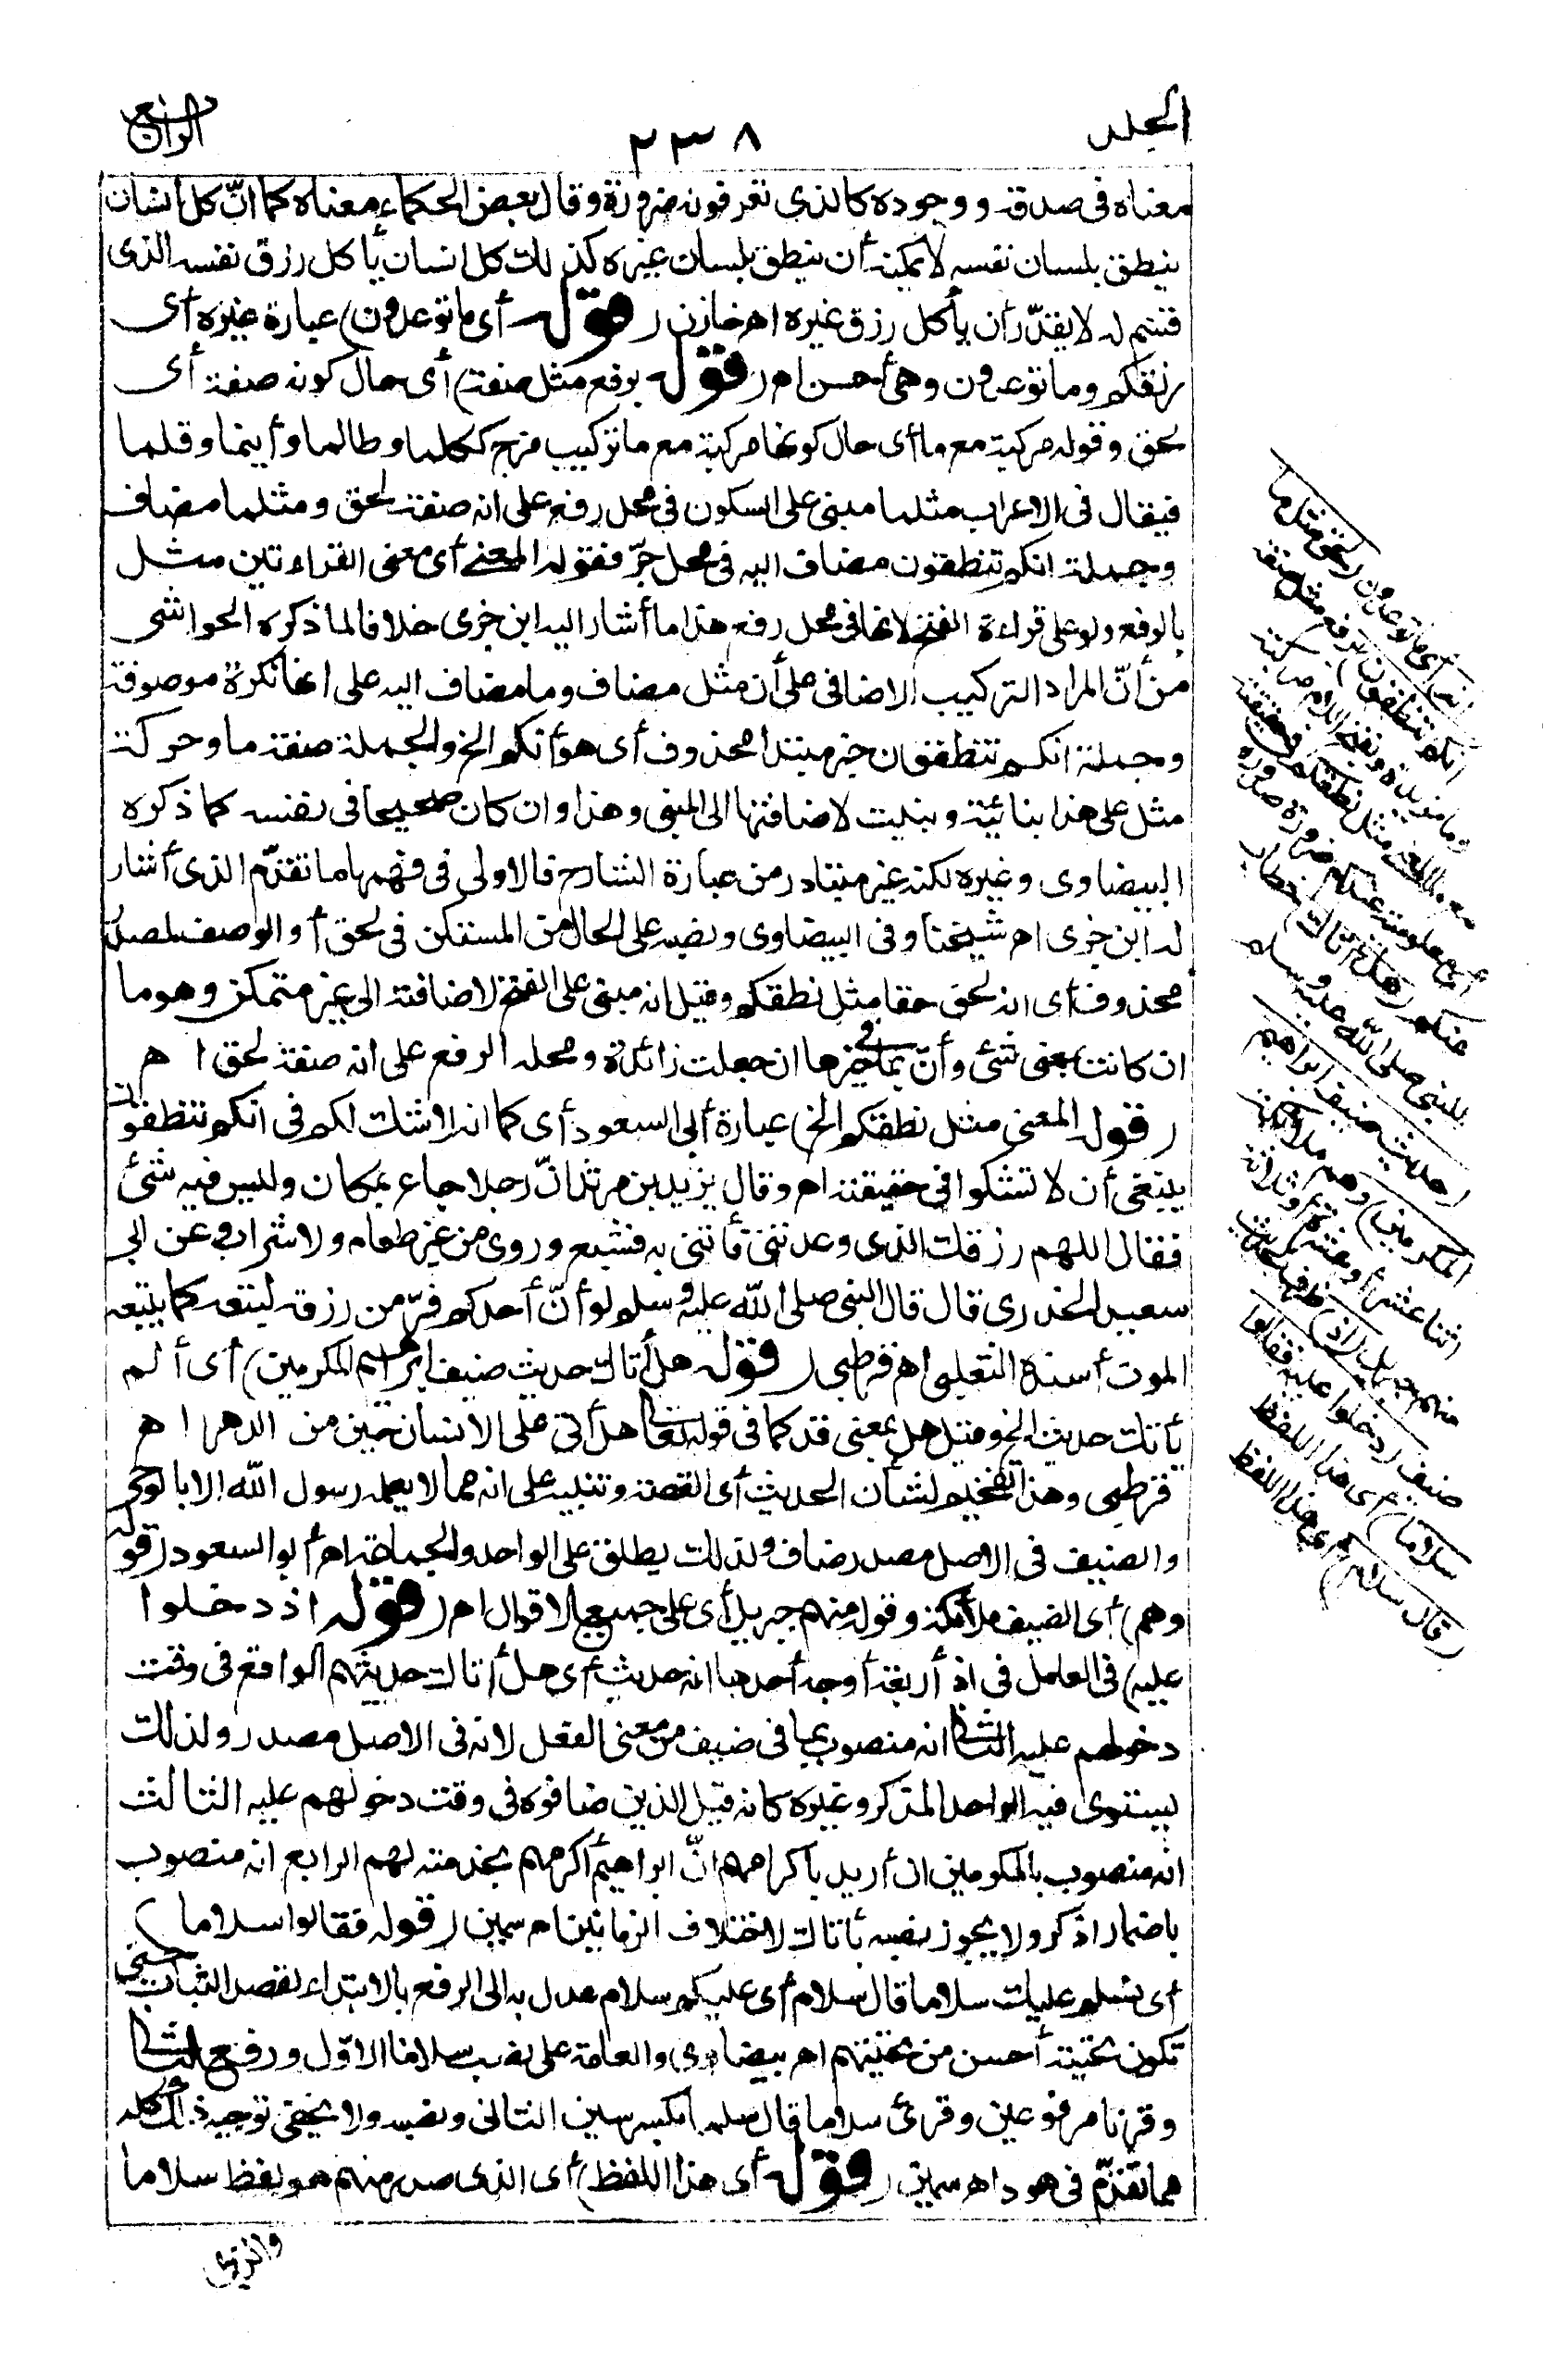 الجلد
٢٣٨
الرابع
معناه فى صدقه ووجوده كالذى تعرفونه ضرورة وقال بعض الحكماء معناه كما انّ كل انسان
ينطق بلسان نفسه لا يمكنه أن ينطق بلسان غيره كذلك كل انسان يأكل رزق نفسه الذى
قسم له لا يقدّر أن يأكل رزق غيره اهـ خازن (قوله أى ما توعدون) عبارة غيره أى
رزقكم وما توعدون وهى أحسن اهـ (قوله برفع مثل صفة) أى حال كونه صفة أى
لحق وقوله مركبة مع ما أى حال كونها مركبة مع ما تركيب مزج ككلما وطالما وأينما وقلما
فيقال فى الاعراب مثلما مبنى على السكون فى محل رفع على انه صفة لحق ومثلما مضاف
وجملة انكم تنطقون مضاف اليه فى محل جرّ فقوله المعنى أى معنى القراءتين مثل
بالرفع ولو على قراءة الفتح لانها فى محل رفع هذا ما أشار اليه ابن جزى خلافا لما ذكره الحواشى
من أنّ المراد التركيب الاضافى على أن مثل مضاف وما مضاف اليه على انها نكرة موصوفة
وجملة انكم تنطقون خبر مبتدا محذوف أى هو أنكم الخ والجملة صفة ما وحركة
مثل على هذا بنائية وبنيت لاضافتها الى المبنى وهذا وان كان صحيحا فى نفسه كما ذكره
البيضاوى وغيره لكنه غير متبادر من عبارة الشارح فالاولى فى فهمها ما تقدّم الذى أشار
له ابن جزى اهـ شيخنا وفى البيضاوى ونصبه على الحال من المستكن فى لحق أو الوصف لمصدر
محذوف أى انه لحق حقا مثل نطقكم وقيل انه مبنى على الفتح لاضافته الى غير متمكن وهو ما
ان كانت بمعنى شئ وأنّ بما فى حيزها ان جعلت زائدة ومحله الرفع على انه صفة لحق اهـ
(قوله المعنى مثل نطقكم الخ) عبارة أبى السعود أى كما انه لا شك لكم فى انكم تنطقون
ينبغى أن لا تشكوا فى حقيقته اهـ وقال يزيد بن مرثد انّ رجلا جاع بمكان وليس فيه شئ
فقال اللهم رزقك الذى وعدتنى فأتنى به فشبع وروى من غير طعام ولا شراب وعن ابى
سعيد الخدرى قال قال النبى صلى الله عليه وسلم لو أنّ أحدكم فرّ من رزقه ليتبعه كما يتبعه
الموت أسنده الثعلبى اهـ قرطبى (قوله هل أتاك حديث ضيف ابراهيم المكرمين) أى ألم
يأتك حديث الخ وقيل هل بمعنى قد كما فى قوله تعالى هل أتى على الانسان حين من الدهر اهـ
قرطبى وهذا تفخيم لشأن الحديث أى القصة وتنبيه على انه مما لا يعلمه رسول الله الا بالوحى
والضيف فى الاصل مصدر ضاف ولذلك يطلق على الواحد والجماعة اهـ أبو السعود (قوله
وهم) أى الضيف ملائكة وقوله منهم جبريل أى على جميع الاقوال اهـ (قوله اذ دخلوا
عليه) فى العامل فى اذ أربعة أوجه أحدها انه حديث أى هل أتاك حديثهم الواقع فى وقت
دخولهم عليه الثانى انه منصوب بما فى ضيف من معنى الفعل لانه فى الاصل مصدر ولذلك
يستوى فيه الواحد المذكر وغيره كانه قيل الذين ضافوه فى وقت دخولهم عليه الثالث
انه منصوب بالمكرمين ان أريد باكرامهم انّ ابراهيم أكرمهم بخدمته لهم الرابع انه منصوب
باضمار اذكر ولا يجوز نصبه بأتاك لاختلاف الزمانين اهـ سمين (قوله فقالوا سلاما)
أى نسلم عليك سلاما قال سلام أى عليكم سلام عدل به الى الرفع بالابتداء لقصد الثبات حتى
تكون تحيته أحسن من تحيتهم اهـ بيضاوى والعامة على نصب سلاما الاوّل ورفع الثانى
وقرئا مرفوعين وقرئ سلاما قال سلما بكسر سين الثانى ونصبه ولا يخفى توجيه ذلك كله
مما تقدّم فى هود اهـ سمين (قوله أى هذا اللفظ) أى الذى صدر منهم هو لفظ سلاما
انه) أى ما توعدون (لحق مثل ما
انكم تنطقون) برفع مثل صفة
وما مزيدة وبفتح اللام مركبة
مع ما المعنى مثل نطقكم فى حقيقته
أى معلوميته عندكم ضرورة صدوره
عنكم (هل أتاك) خطاب
للنبى صلى الله عليه وسلم
(حديث ضيف ابراهيم
المكرمين) وهم ملائكة
اثنا عشر أو عشرة أو ثلاثة
منهم جبريل (اذ) ظرف لحديث
ضيف (دخلوا عليه فقالوا
سلاما) أى هذا اللفظ
(قال سلام) أى هذا اللفظ